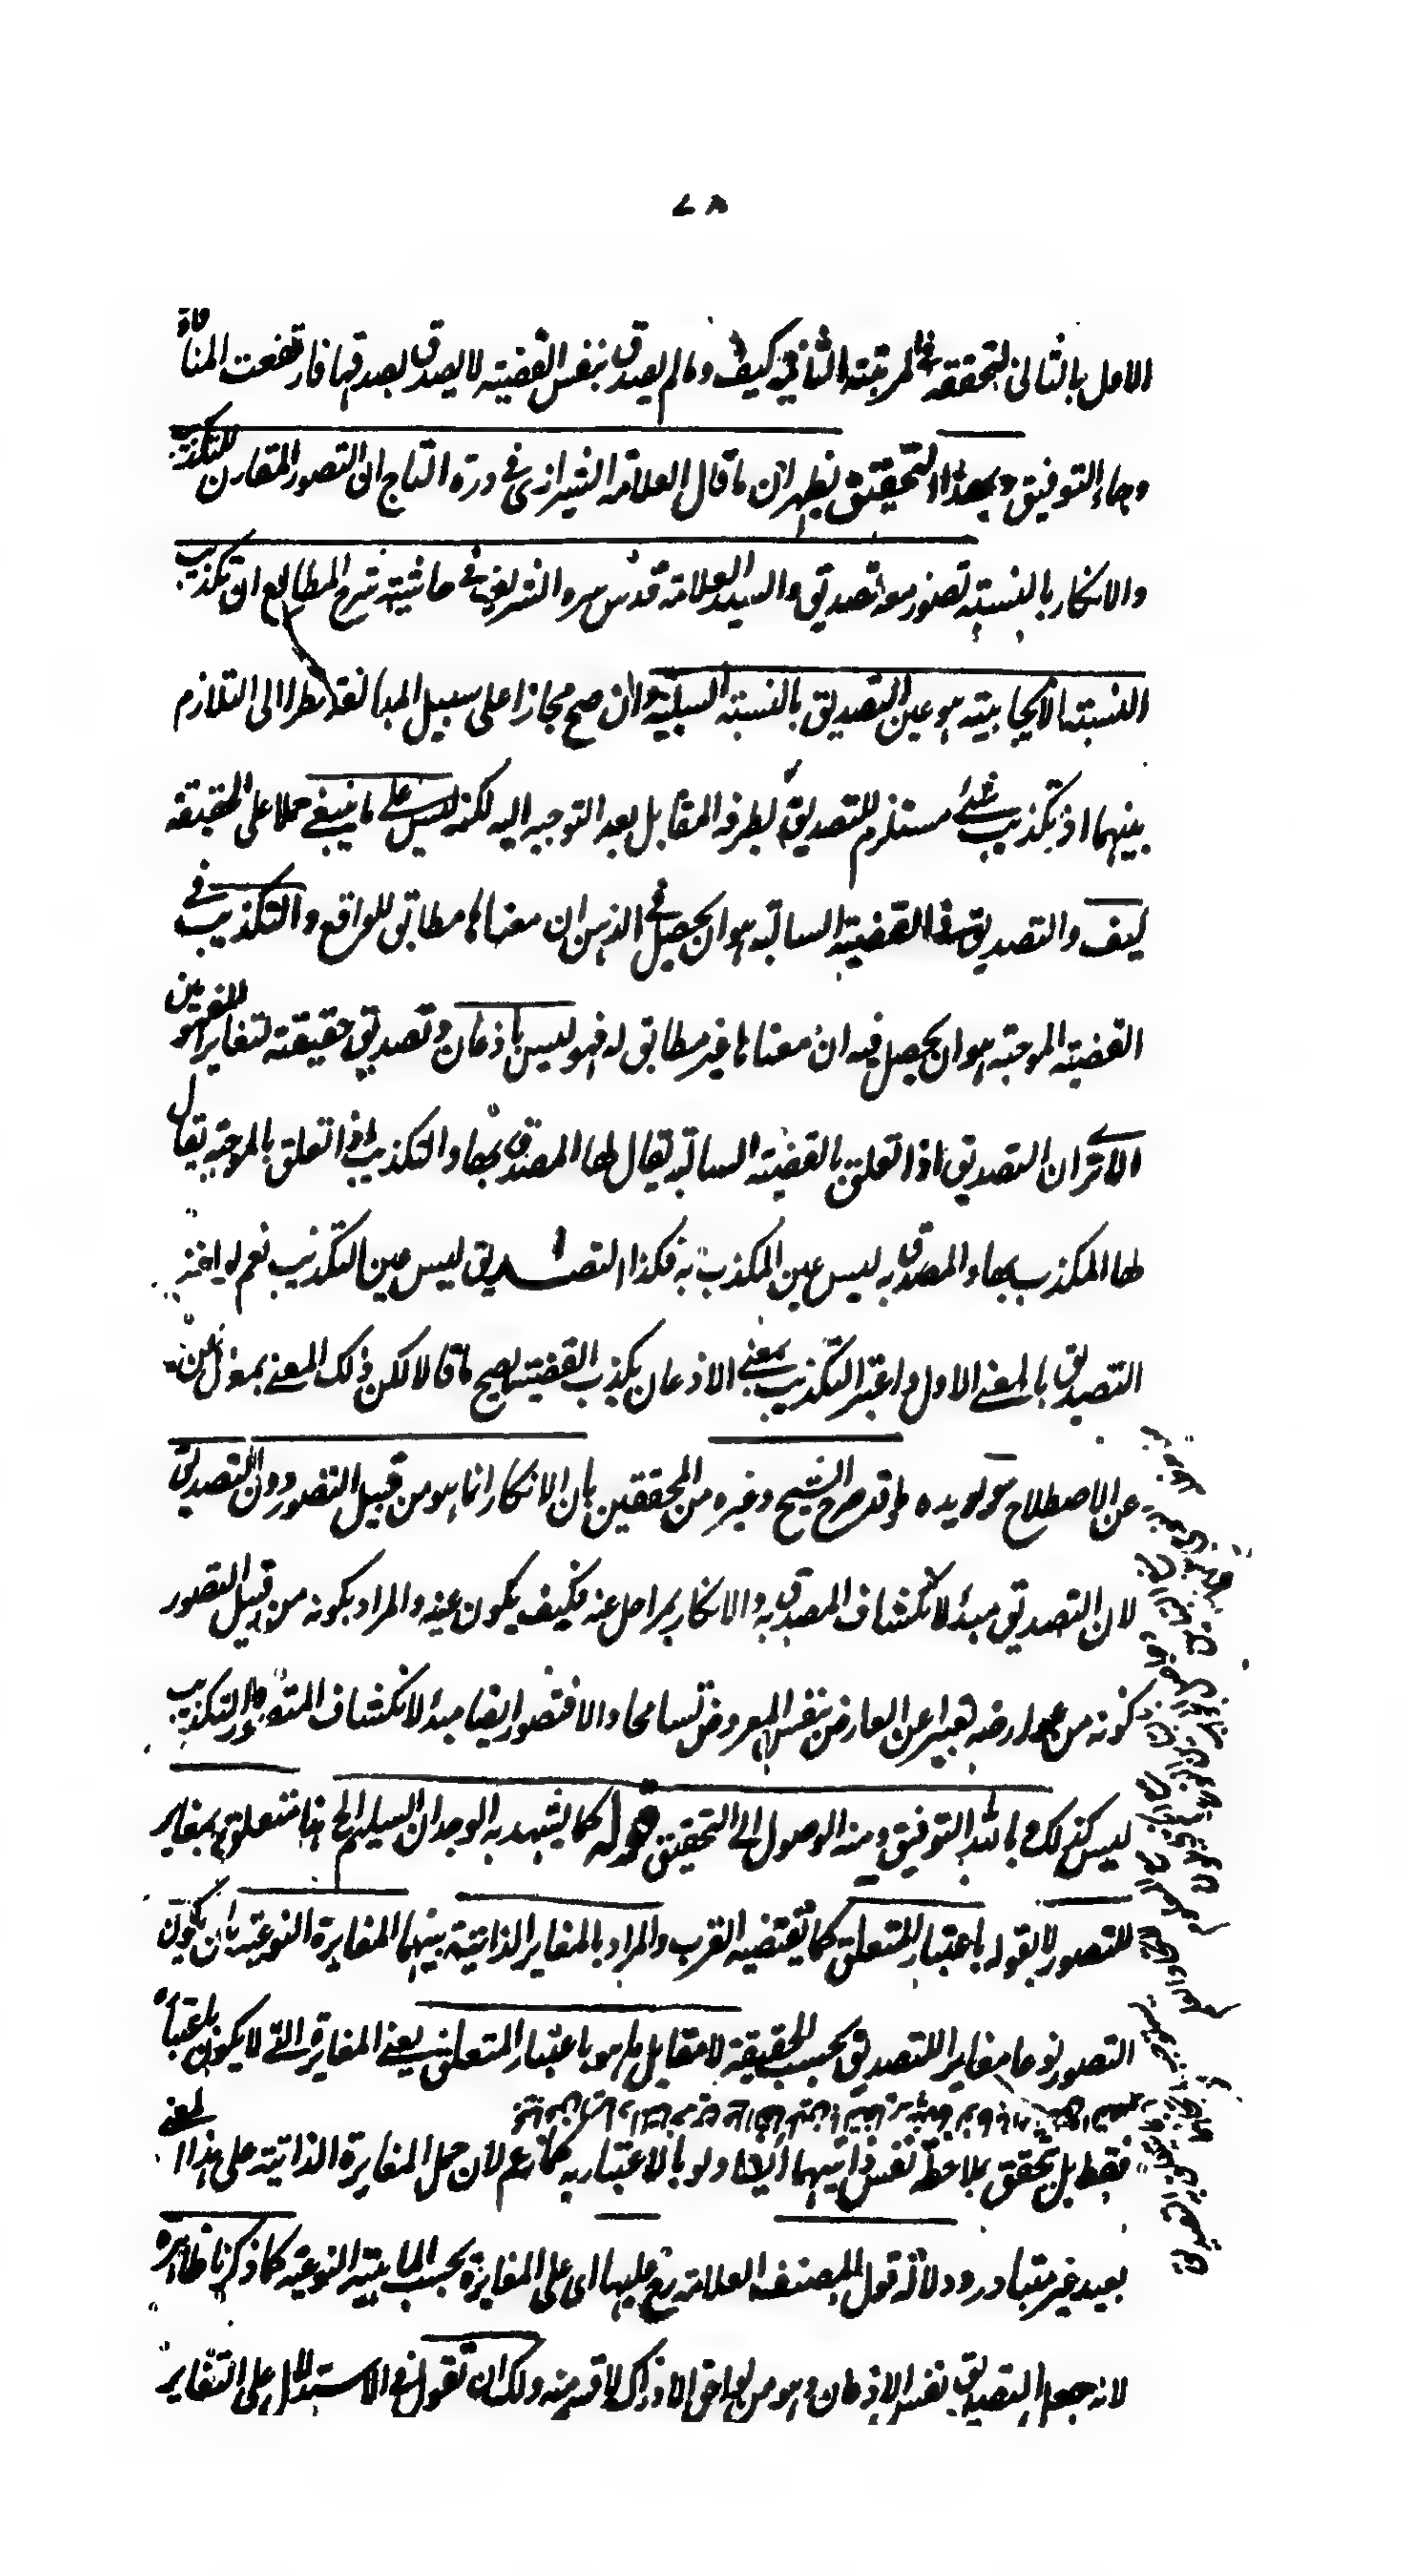 ٧٨
الاول بالثانى لتحققه فى المرتبة الثانية كيف ومالم يصدق بنفس القضية لا يصدق بصدقها فارتفعت المنافاة
وجاء التوفيق وبهذا التحقيق يظهر ان ما قال العلامة الشيرازى فى درة التاج ان التصور المقارن للتكذيب
والانكار بالنسبة تصور معه تصديق والسيد العلامة قدس سره الشريف فى حاشية شرح المطالع ان تكذيب
النسبة الايجابية هو عين التصديق بالنسبة السلبية وان صح مجازا على سبيل المبالغة نظرا الى التلازم
بينهما اذ تكذيب شئ مستلزم للتصديق لطرفه المقابل بعد التوجيه اليه لكنه ليس على ما ينبغى حملا على الحقيقة
كيف والتصديق فى القضية السالبة هو ان يحصل فى الذهن ان معناها مطابق للواقع والتكذيب فى
القضية الموجبة هو ان يحصل فيه ان معناها غير مطابق له فهو ليس باذعان وتصديق حقيقة لتغاير المفهومين
الا تر ان التصديق اذا تعلق بالقضية السالبة يقال لها المصدق بها والتكذيب اذا تعلق بالموجبة يقال
لها المكذب بها والمصدق به ليس عين المكذب به فكذا التصديق ليس عين التكذيب نعم لو اخذ
التصديق بالمعنى الاول واعتبر التكذيب بمعنى الاذعان بكذب القضية يصح ما قالا لكن ذلك المعنى بمعزل عن
عن الاصطلاح ويؤيده ما قد صرح الشيخ وغيره من المحققين بان الانكار انما هو من قبيل التصور دون التصديق
لان التصديق مبدأ لانكشاف المصدق به والانكار بمراحل عنه فكيف يكون عينه والمراد بكونه من قبيل التصور
كونه من عوارضه تعبيرا عن العارض بنفس المعروض تسامحا والا فتصور ايضا مبدأ لانكشاف المتصور والتكذيب
ليس كذلك وبالله التوفيق ومنه الوصول الى التحقيق قوله كما يشهد به الوجدان السليم الخ متعلق بمغاير
للتصور لا بقوله باعتبار المتعلق كما يقتضيه القرب والمراد بالمغاير الذاتية بينهما المغايرة النوعية بان يكون
التصور نوعا مغايرا للتصديق بحسب الحقيقة لا مقابل ما هو باعتبار المتعلق يعنى المغايرة التى لا يكون باعتباره
فقط بل تحقق بملاحظة نفس ذاتيهما ايضا ولو بالاعتبار به كما زعم لان حمل المغايرة الذاتية على هذا المعنى
بعيد غير متبادر ودلالة قول المصنف العلامة رح عليها اى على المغايرة بحسب الماهية النوعية كما ذكرنا ظاهرة
لانه جعل التصديق نفس الاذعان وهو من لواحق الادراك لا قسم منه ولك ان تقول فى الاستدلال على التغاير